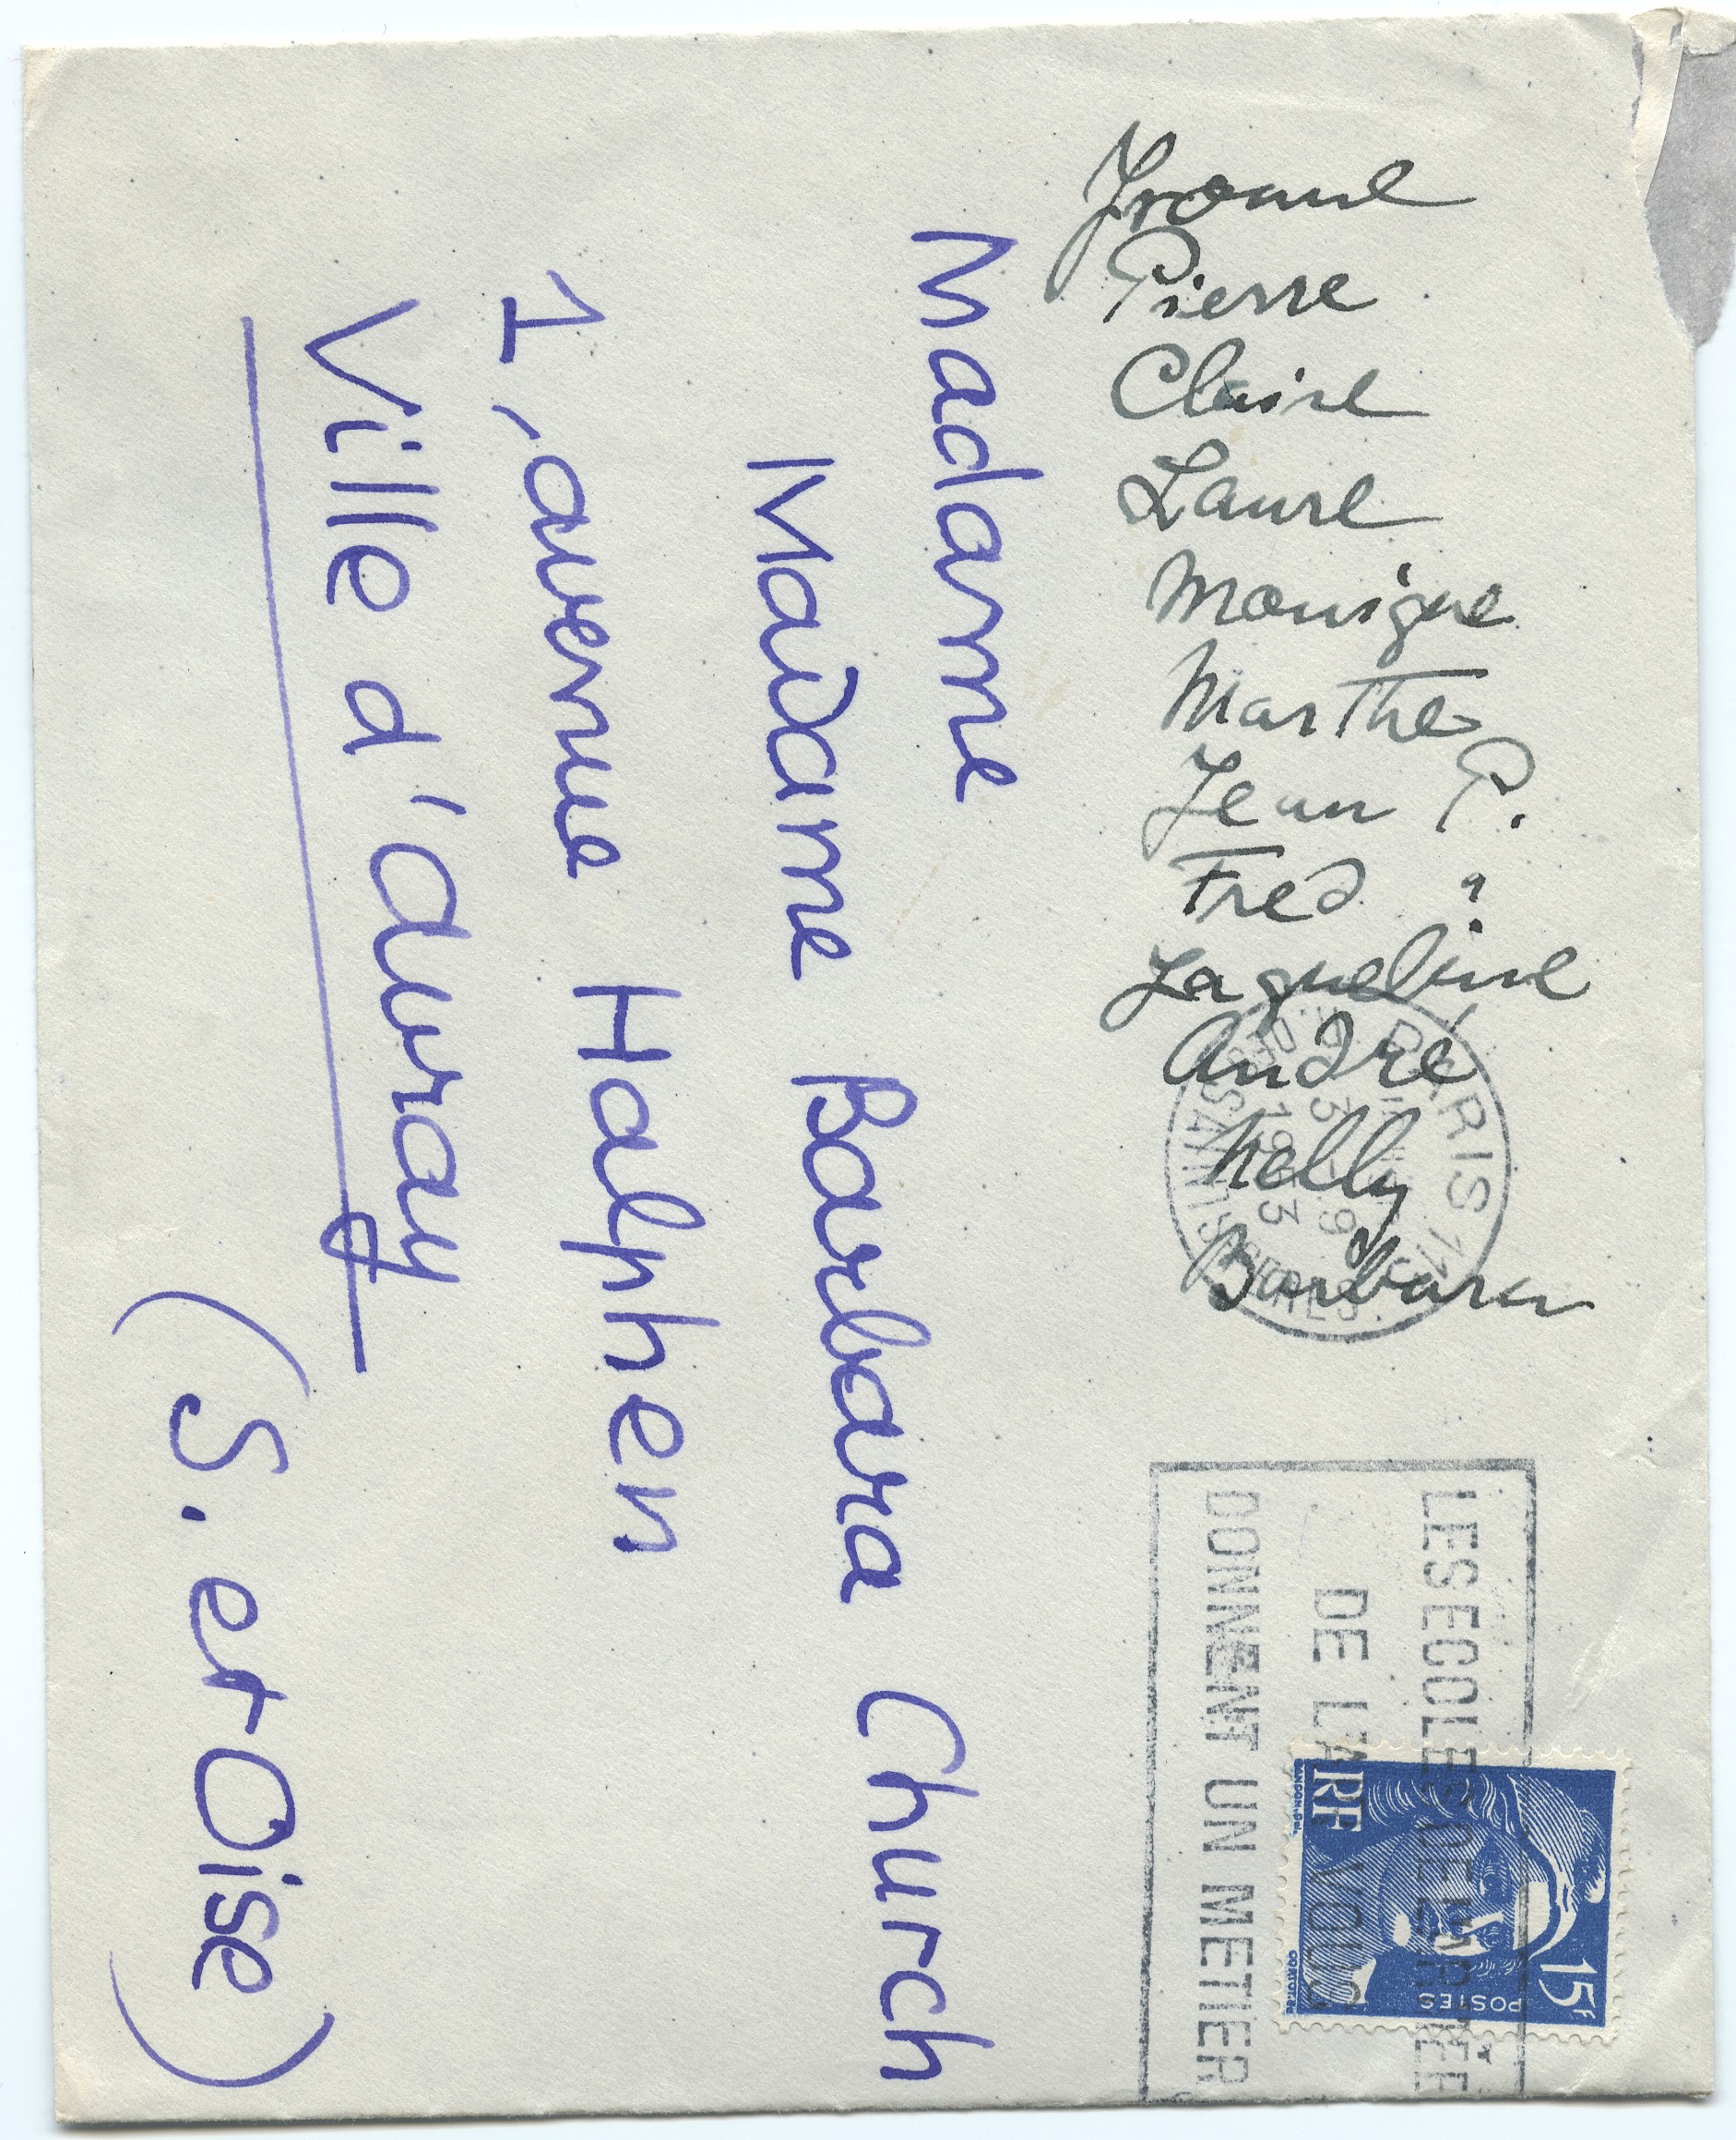 Yvonne
Pierre
Claire
Laure
Monique
Marthe
Jean P.
Fred ?
Jaqueline
André
Nelly
Barbara
Madame
Madame Barbara Church
1, avenue Halphen
Ville d'avray
(S. et Oise)
PARIS 17
LES ECOLES DE L'ARMEE
DE L'AIR VOUS
DONNENT UN METIER
RF
15F
POSTES
GANDON.DEL.